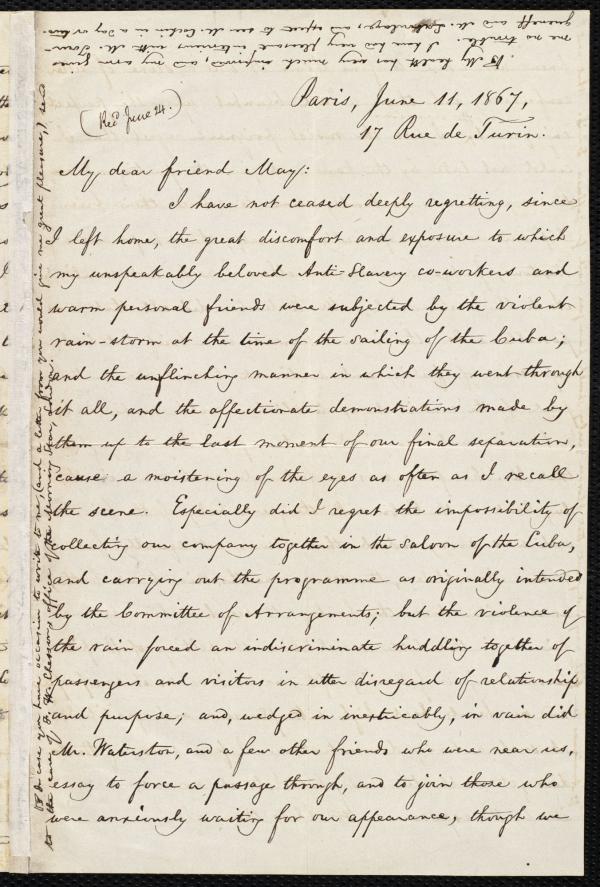 Paris, June 11, 1867,
17 Rue de Turin.
(Rec'd June 24.)
My dear friend May:
I have not ceased deeply regretting, since
I left home, the great discomfort and exposure to which
my unspeakably beloved Anti-Slavery co-workers and
warm personal friends were subjected by the violent
rain-storm at the time of the sailing of the Cuba;
and the unflinching manner in which they went through
it all, and the affectionate demonstrations made by
them up to the last moment of our final separation,
cause a moistening of the eyes as often as I recall
the scene. Especially did I regret the impossibility of
collecting our company together in the saloon of the Cuba,
and carrying out the programme as originally intended
by the Committee of Arrangements; but the violence of
the rain forced an indiscriminate huddling together of
passengers and visitors in utter disregard of relationship
and purpose; and, wedged in inextricably, in vain did
Mr. Waterston, and a few other friends who were near us,
essay to force a passage through, and to join those who
were anxiously waiting for our appearance, though we
In case you have occasion to write to me, (and a letter from you would give me great pleasure,) send
to the care of F. W. Chesson, office of the Morning Star, London.
My health has very much improved, and my arm gives
me no trouble. I have had very pleasant interviews with M. Tour-
gueneff and M. Laboulaye, and expect to see M. Cochin in a day or two.